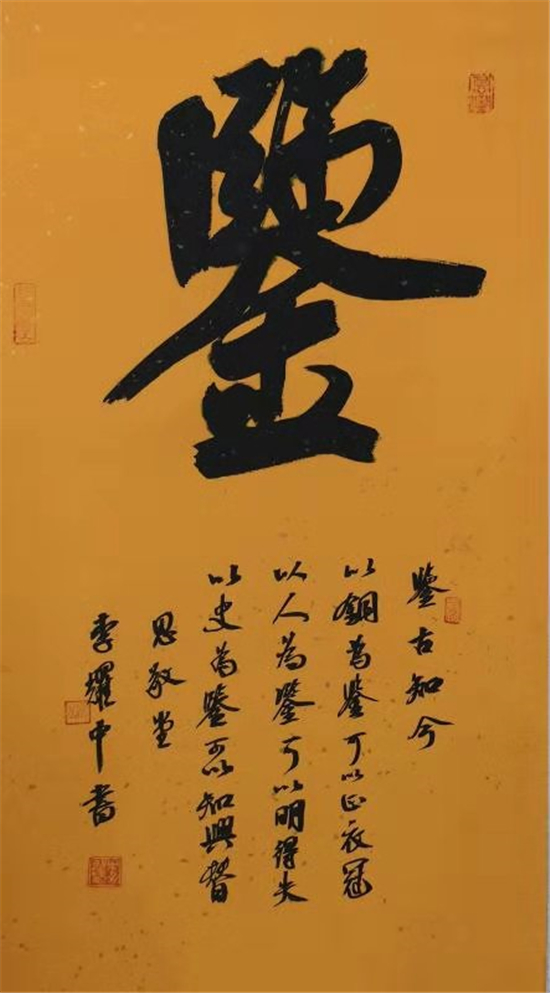 鑒
鑒古知今
以銅為鑒可以正衣冠
以人為鑒可以明得失
以史為鑒可以知興替
思敬堂
李耀中書